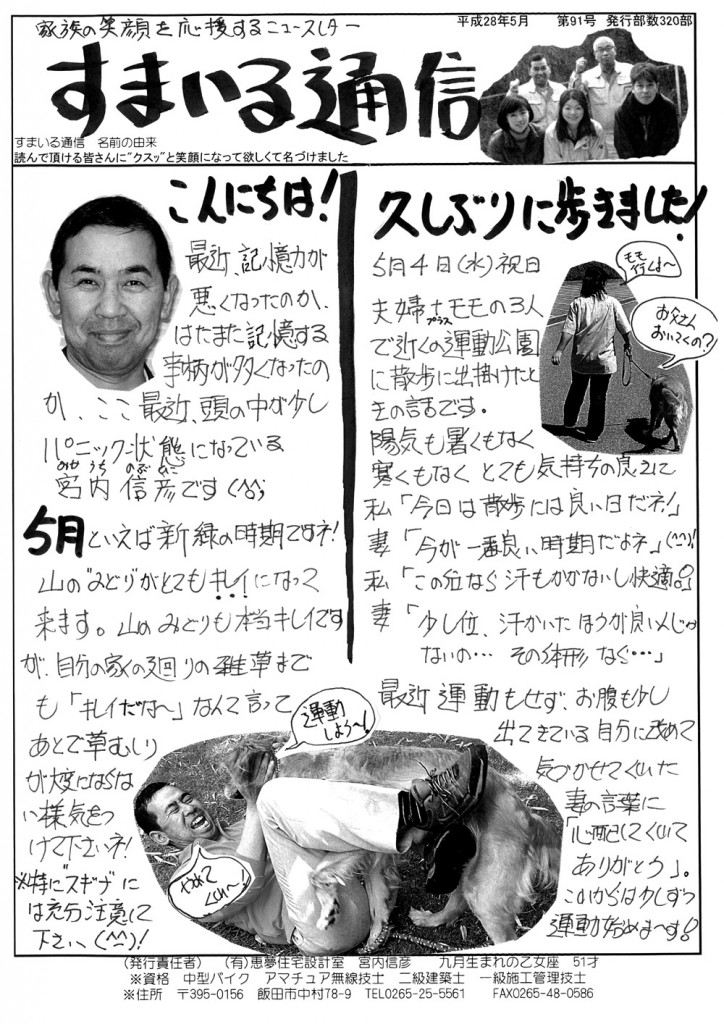 家族の笑顔を応援するニュースレター
平成28年5月　第91号　発行部数320部
すまいる通信
すまいる通信　名前の由来
読んで頂ける皆さんに"クスッ"と笑顔になって欲しくて名づけました
こんにちは!
最近、記憶力が
悪くなったのか、
はたまた記憶する
事柄が多くなったの
か、ここ最近、頭の中が少し
パニック状態になっている
みやうち のぶひこ
宮内 信彦です(^^;
5月といえば新緑の時期ですネ!
山の"みどり"がとてもキレイになって
来ます。山のみどりも本当キレイです
が、自分の家の廻りの雑草まで
も「キレイだな〜」なんて言って
あとで草むしり
が大変にならな
い様気をつ
けて下さいネ!
※特に"スギナ"に
は充分注意して
下さい(^^)!
久しぶりに歩きました!
5月4日(水)祝日
夫婦+モモの3人
プラス
で近くの運動公園
に散歩に出掛けたと
きの話です。
陽気も暑くもなく
寒くもなくとても気持ちの良い
私「今日は散歩には良い日だネ!」
妻「今が一番良い時期だよネ」(^^)!
私「この位なら汗もかかないし快適。」
妻「少し位、汗かいたほうが良いんじゃ
ないの… その体形なら…」
モモ
行くよ〜
お父さん
おいてくの?
最近運動もせず、お腹も少し
出てきている自分に改めて
気づかせてくれた
妻の言葉に
「心配してくれて
ありがとう」。
これからは少しずつ
運動始めま〜す!
運動
しよう〜!
やめて
くれ〜!
(発行責任者)　(有)恵夢住宅設計室　宮内信彦　九月生まれの乙女座　51才
※資格　中型バイク　アマチュア無線技士　二級建築士　一級施工管理技士
※住所　〒395-0156　飯田市中村78-9　TEL0265-25-5561　FAX0265-48-0586